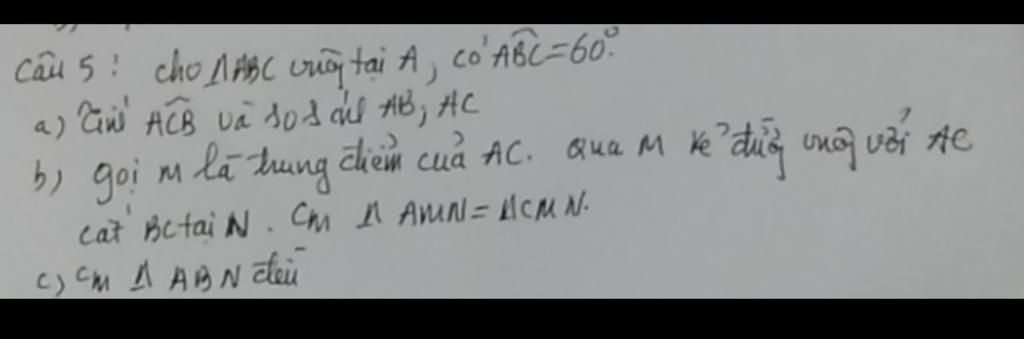 Câu 5: cho ΔABC vuông tại A, có ABC=60°.
a) Tính ACB và so sánh AB, AC
b) gọi M là trung điểm của AC. Qua M kẻ đường vuông với AC
cắt BC tại N. Cm Δ AMN=ΔCMN.
c) Cm Δ ABN đều